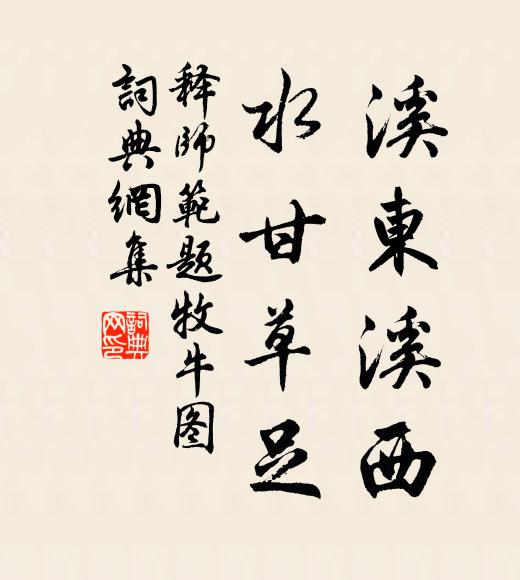 溪東溪西
水甘草足
释師範题牧牛图
詞典網集
詞典
网印